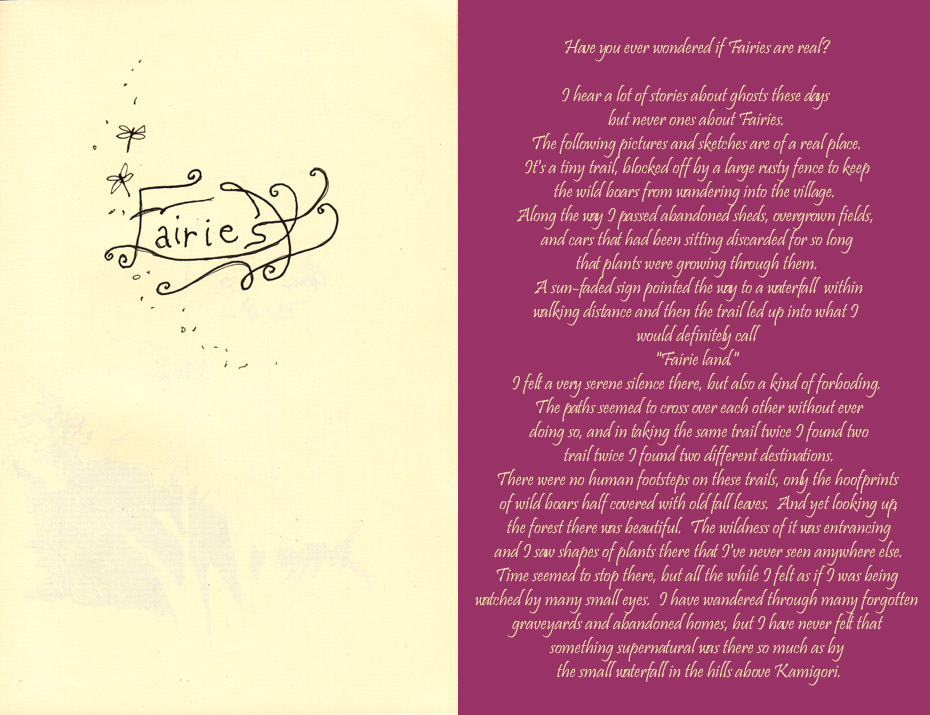 Fairies
Have you ever wondered if Fairies are real?
I hear a lot of stories about ghosts these days
but never ones about Fairies.
The following pictures and sketches are of a real place.
It's a tiny trail, blocked off by a large rusty fence to keep
the wild boars from wandering into the village.
Along the way I passed abandoned sheds, overgrown fields,
and cars that had been sitting discarded for so long
that plants were growing through them.
A sun-faded sign pointed the way to a waterfall within
walking distance and then the trail led up into what I
would definitely call
"Fairie land."
I felt a very serene silence there, but also a kind of forboding.
The paths seemed to cross over each other without ever
doing so, and in taking the same trail twice I found two
trail twice I found two different destinations.
There were no human footsteps on these trails, only the hoofprints
of wild boars half covered with old fall leaves. And yet looking up,
the forest there was beautiful. The wildness of it was entrancing
and I saw shapes of plants there that I've never seen anywhere else.
Time seemed to stop there, but all the while I felt as if I was being
watched by many small eyes. I have wandered through many forgotten
graveyards and abandoned homes, but I have never felt that
something supernatural was there so much as by
the small waterfall in the hills above Kamigori.